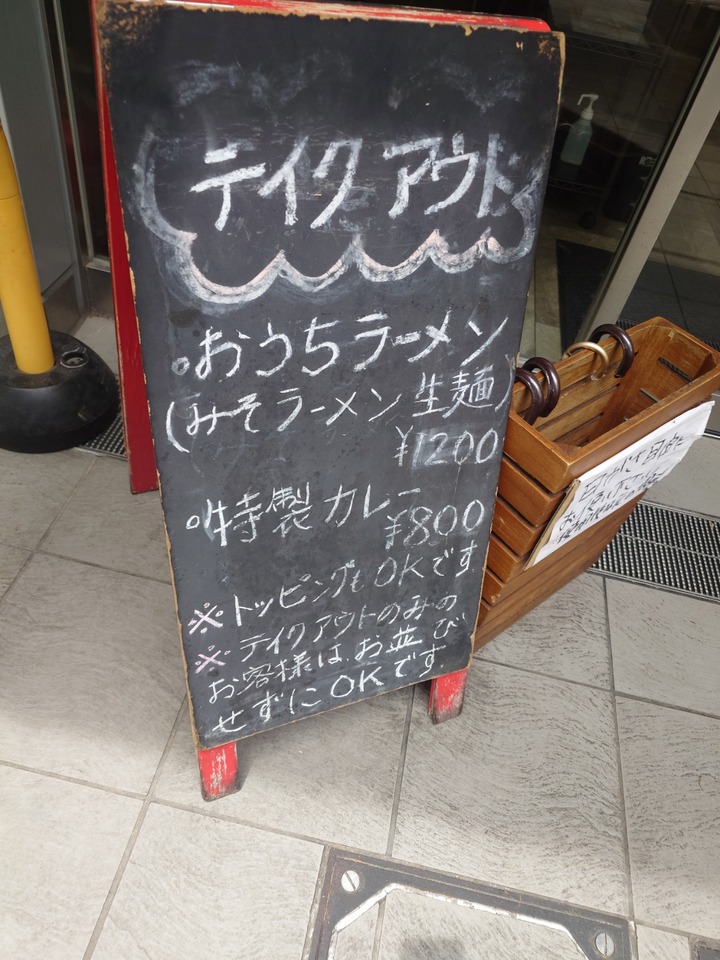 テイクアウト
○おうちラーメン
(みそラーメン生麺)
¥1200
○特製カレー
¥800
※トッピングもOKです
※テイクアウトのみの
お客様はお並び
せずにOKです